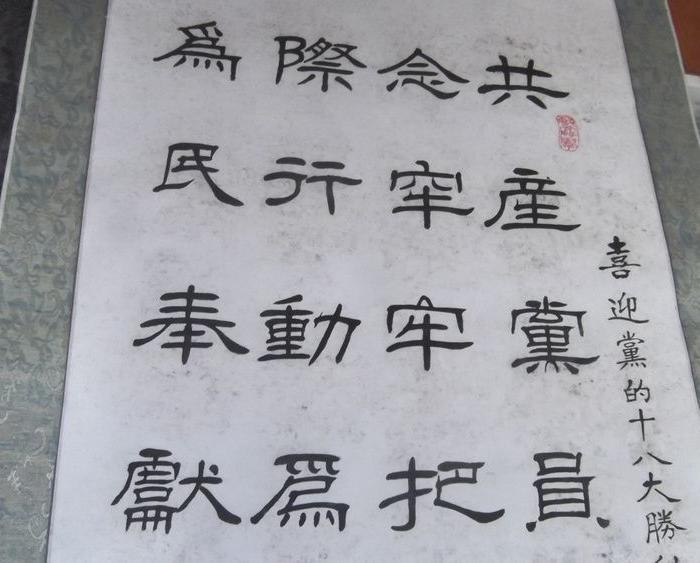 喜迎黨的十八大勝
共産黨員
念牢牢把
際行動為
爲民奉獻